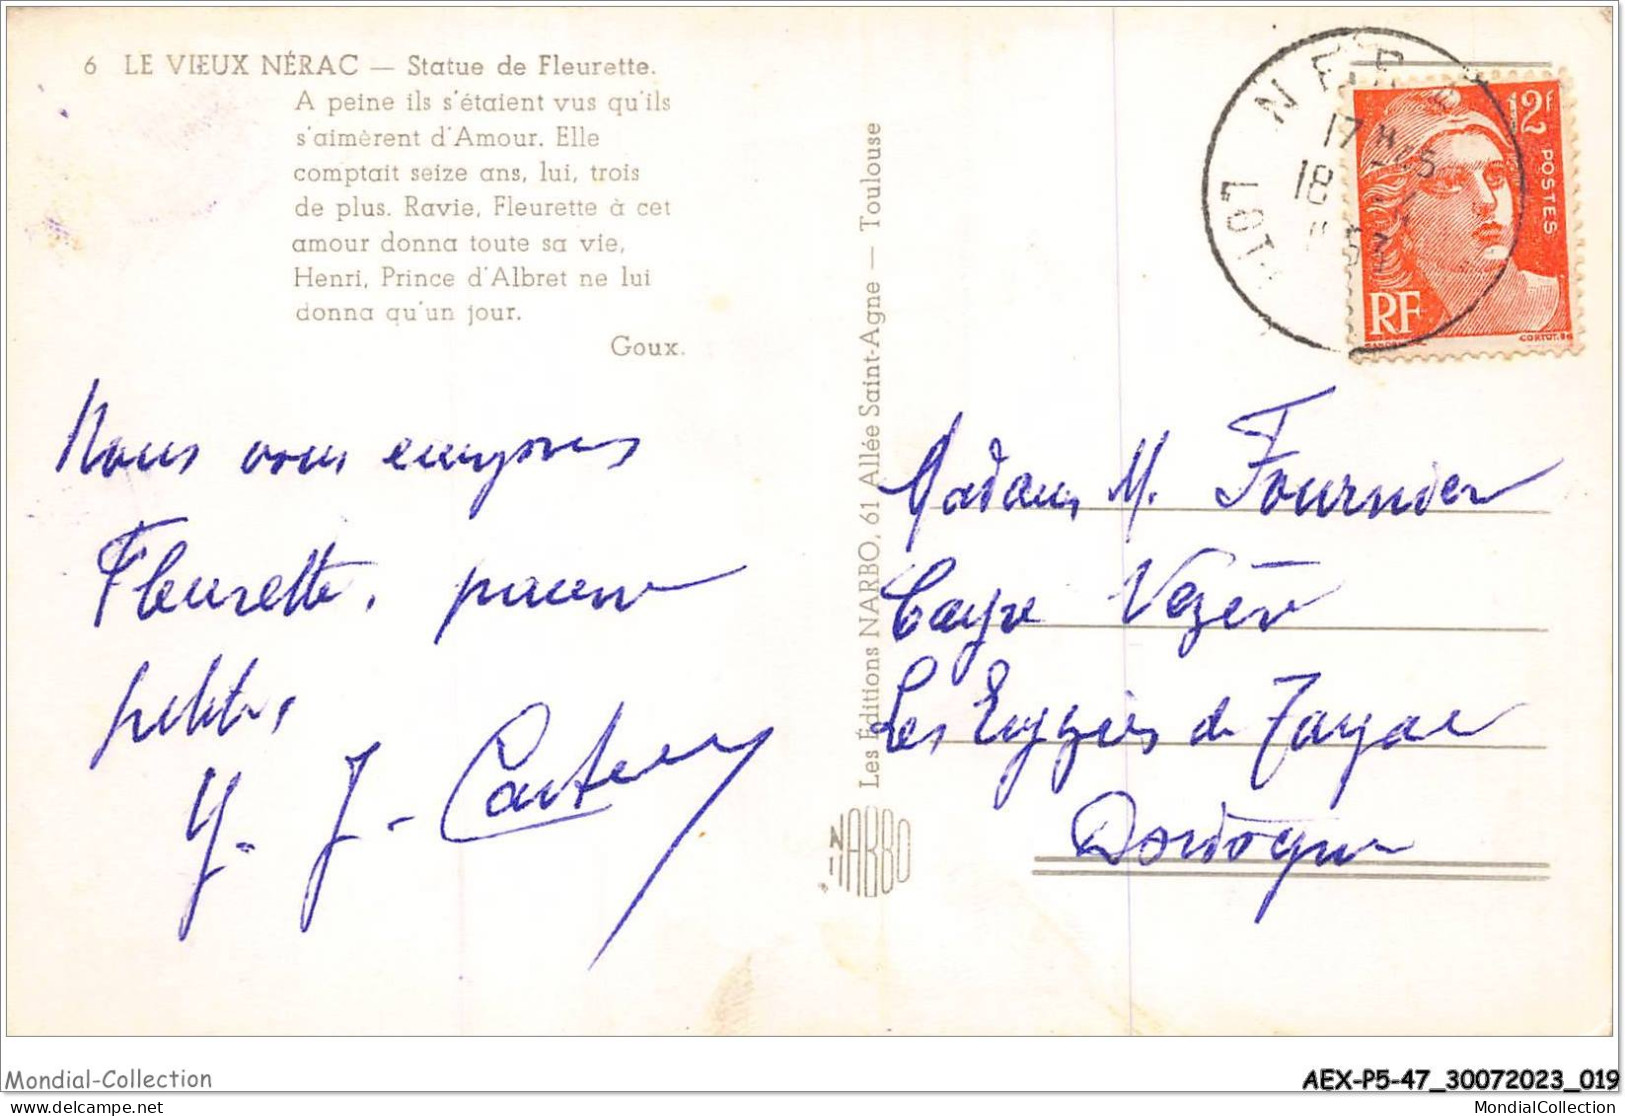 6 LE VIEUX NÉRAC — Statue de Fleurette.
A peine ils s'étaient vus qu'ils
s'aimèrent d'Amour. Elle
comptait seize ans, lui, trois
de plus. Ravie, Fleurette à cet
amour donna toute sa vie,
Henri, Prince d'Albret ne lui
donna qu'un jour.
Goux.
Nous vous envoyons
Fleurette, pauvre
petite,
Y. J. -
Les Éditions NARBO, 61 Allée Saint-Agne — Toulouse
NARBO
NER
17H
18
LOT
12F
POSTES
RF
Madame M. Fournier
Vézère
Les Eyzies de Tayac
Dordogne
Mondial-Collection
AEX-P5-47_30072023_019
delcampe.net
MondialCollection